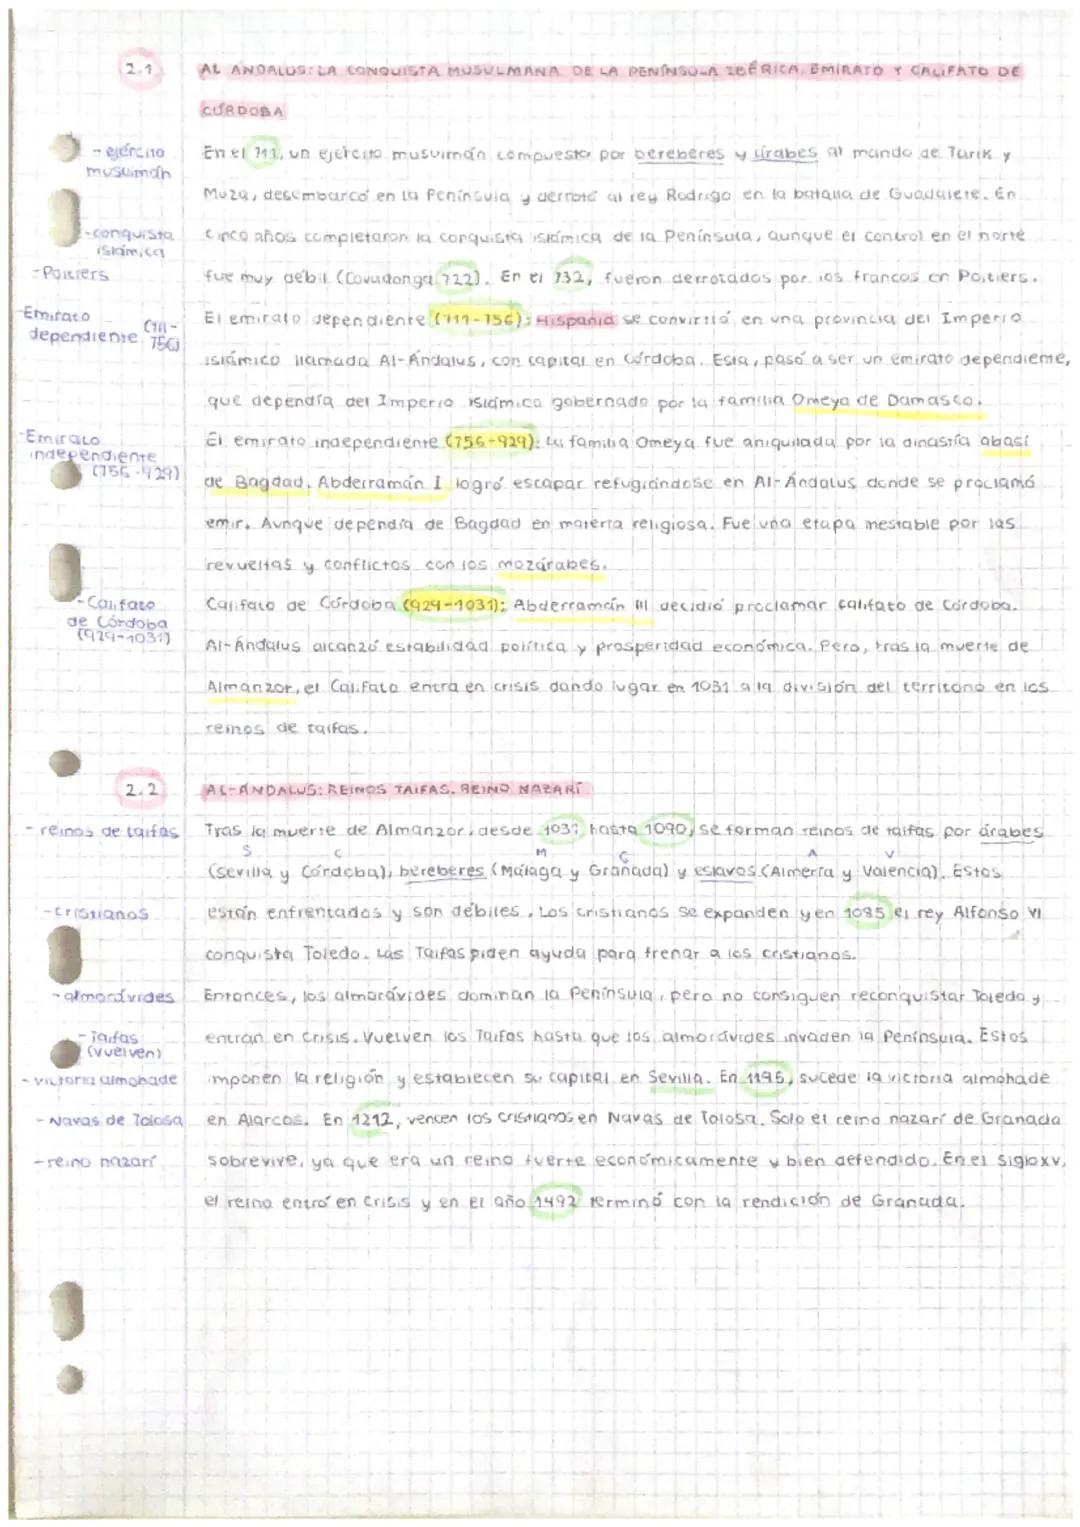 2.1 AL ANDALUS: LA CONQUISTA MUSULMANA DE LA PENÍNSULA IBÉRICA. EMIRATO Y CALIFATO DE
CÓRDOBA
- ejército
musulmán
En el 711, un ejército musulmán compuesto por bereberes y árabes al mando de Tarik y
Muza, desembarcó en la Península y derrotó al rey Rodrigo en la batalla de Guadalete. En
- conquista
islámica
cinco años completaron la conquista islámica de la Península, aunque el control en el norte
- Poitiers
fue muy débil (Covadonga 722). En el 732, fueron derrotados por los francos en Poitiers.
- Emirato
dependiente (711-
756)
El emirato dependiente (711-756): Hispania se convirtió en una provincia del Imperio
islámico llamada Al-Ándalus, con capital en Córdoba. Esta, pasó a ser un emirato dependiente,
que dependía del Imperio islámico gobernado por la familia Omeya de Damasco.
- Emirato
independiente
(756-929)
El emirato independiente (756-929): La familia Omeya fue aniquilada por la dinastía abasí
de Bagdad. Abderramán I logró escapar refugiándose en Al-Ándalus donde se proclamó
emir. Aunque dependía de Bagdad en materia religiosa. Fue una etapa inestable por las
revueltas y conflictos con los mozárabes.
- Califato
de Córdoba
(929-1031)
Califato de Córdoba (929-1031): Abderramán III decidió proclamar califato de Córdoba.
Al-Ándalus alcanzó estabilidad política y prosperidad económica. Pero, tras la muerte de
Almanzor, el Califato entra en crisis dando lugar en 1031 a la división del territorio en los
reinos de taifas.
2.2 AL-ÁNDALUS: REINOS TAIFAS. REINO NAZARÍ
- reinos de taifas
Tras la muerte de Almanzor, desde 1031 hasta 1090, se forman reinos de taifas por árabes
S C M G A V
(Sevilla y Córdoba), bereberes (Málaga y Granada) y eslavos (Almería y Valencia). Estos
- cristianos
están enfrentados y son débiles. Los cristianos se expanden y en 1085 el rey Alfonso VI
conquista Toledo. Las Taifas piden ayuda para frenar a los cristianos.
- almorávides
Entonces, los almorávides dominan la Península, pero no consiguen reconquistar Toledo y
- Taifas
(vuelven)
entran en crisis. Vuelven los Taifas hasta que los almorávides invaden la Península. Estos
- victoria almohade
imponen la religión y establecen su capital en Sevilla. En 1195, sucede la victoria almohade
- Navas de Tolosa
en Alarcos. En 1212, vencen los cristianos en Navas de Tolosa. Solo el reino nazarí de Granada
- reino nazarí
sobrevive, ya que era un reino fuerte económicamente y bien defendido. En el siglo XV,
el reino entró en crisis y en el año 1492 terminó con la rendición de Granada.